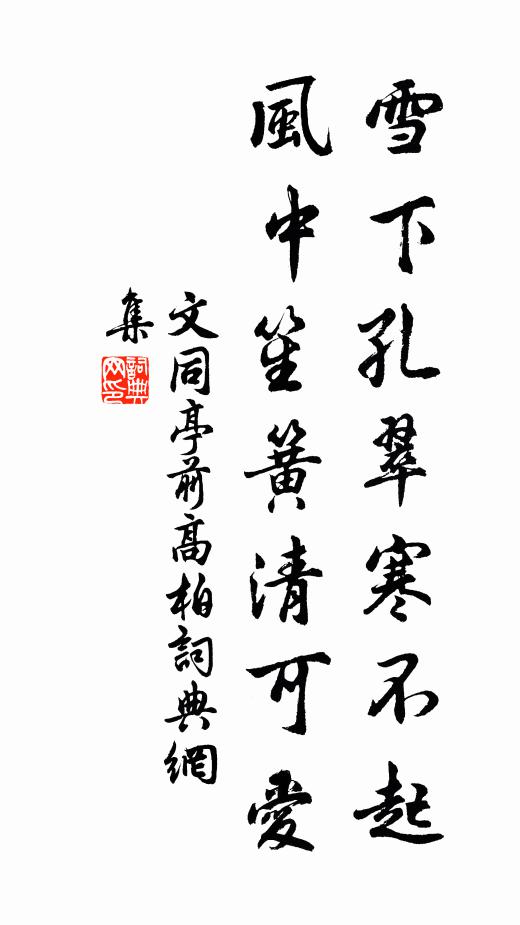 雪下孔翠寒不起
風中笙簧清可愛
文同亭前高柏詞典網
集
詞典網印